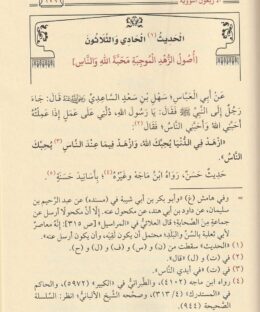 الأربعون النووية
الحديث (١) الحادي والثلاثون
[أُصُولُ الزُّهْدِ الْمُوجِبَةِ مَحَبَّةَ اللهِ وَالنَّاسِ]
عَنْ أَبِي الْعَبَّاسِ؛ سَهْلِ بْنِ سَعْدٍ السَّاعِدِيِّ ﷺ قَالَ: جَاءَ
رَجُلٌ إِلَى النَّبِيِّ ﷺ فَقَالَ: يَا رَسُولَ اللهِ، دُلَّنِي عَلَى عَمَلٍ إِذَا عَمِلْتُهُ
أَحَبَّنِيَ اللهُ وَأَحَبَّنِيَ النَّاسُ؛ فَقَالَ (٢):
«ازْهَدْ فِي الدُّنْيَا يُحِبَّكَ اللهُ، وَازْهَدْ فِيمَا عِنْدَ النَّاسِ (٣) يُحِبَّكَ
النَّاسُ».
حَدِيثٌ حَسَنٌ، رَوَاهُ ابْنُ مَاجَهْ وَغَيْرُهُ (٤)؛ بِأَسَانِيدَ حَسَنَةٍ (٥).
= وفي هامش (ع) «وأبو بكر بن أبي شيبة في «مسنده» عن عبد الرحيم بن
سليمان، عن داود بن أبي هند، عن مكحول عنه. إلَّا أنَّ مكحولاً أرسل عن
جماعةٍ مِنَ الصَّحابة؛ قال العلائي في «المراسيل» [ص ٣١٥]: إنَّه معاصرٌ
لأبي ثعلبة بالسنِّ والبلدِ» محتمل أن يكون لقيه، وأن يكون أرسل عنه».
(١) «الحديث» سقطت من (ن) و (س) و (ف) و (ل) و (ح).
(٢) في (ت): «قال».
(٣) في (ت): «في أيدي النَّاس».
(٤) رواه ابن ماجه (٤١٠٢)، والطَّبرانيُّ في «الكبير» (٥٩٧٢)، والحاكم
في «المستدرك» (٣١٣/٤)، وصحَّحه الشَّيخ الألبانيُّ؛ انظر: السِّلسلة
الصَّحيحة (٩٤٤).